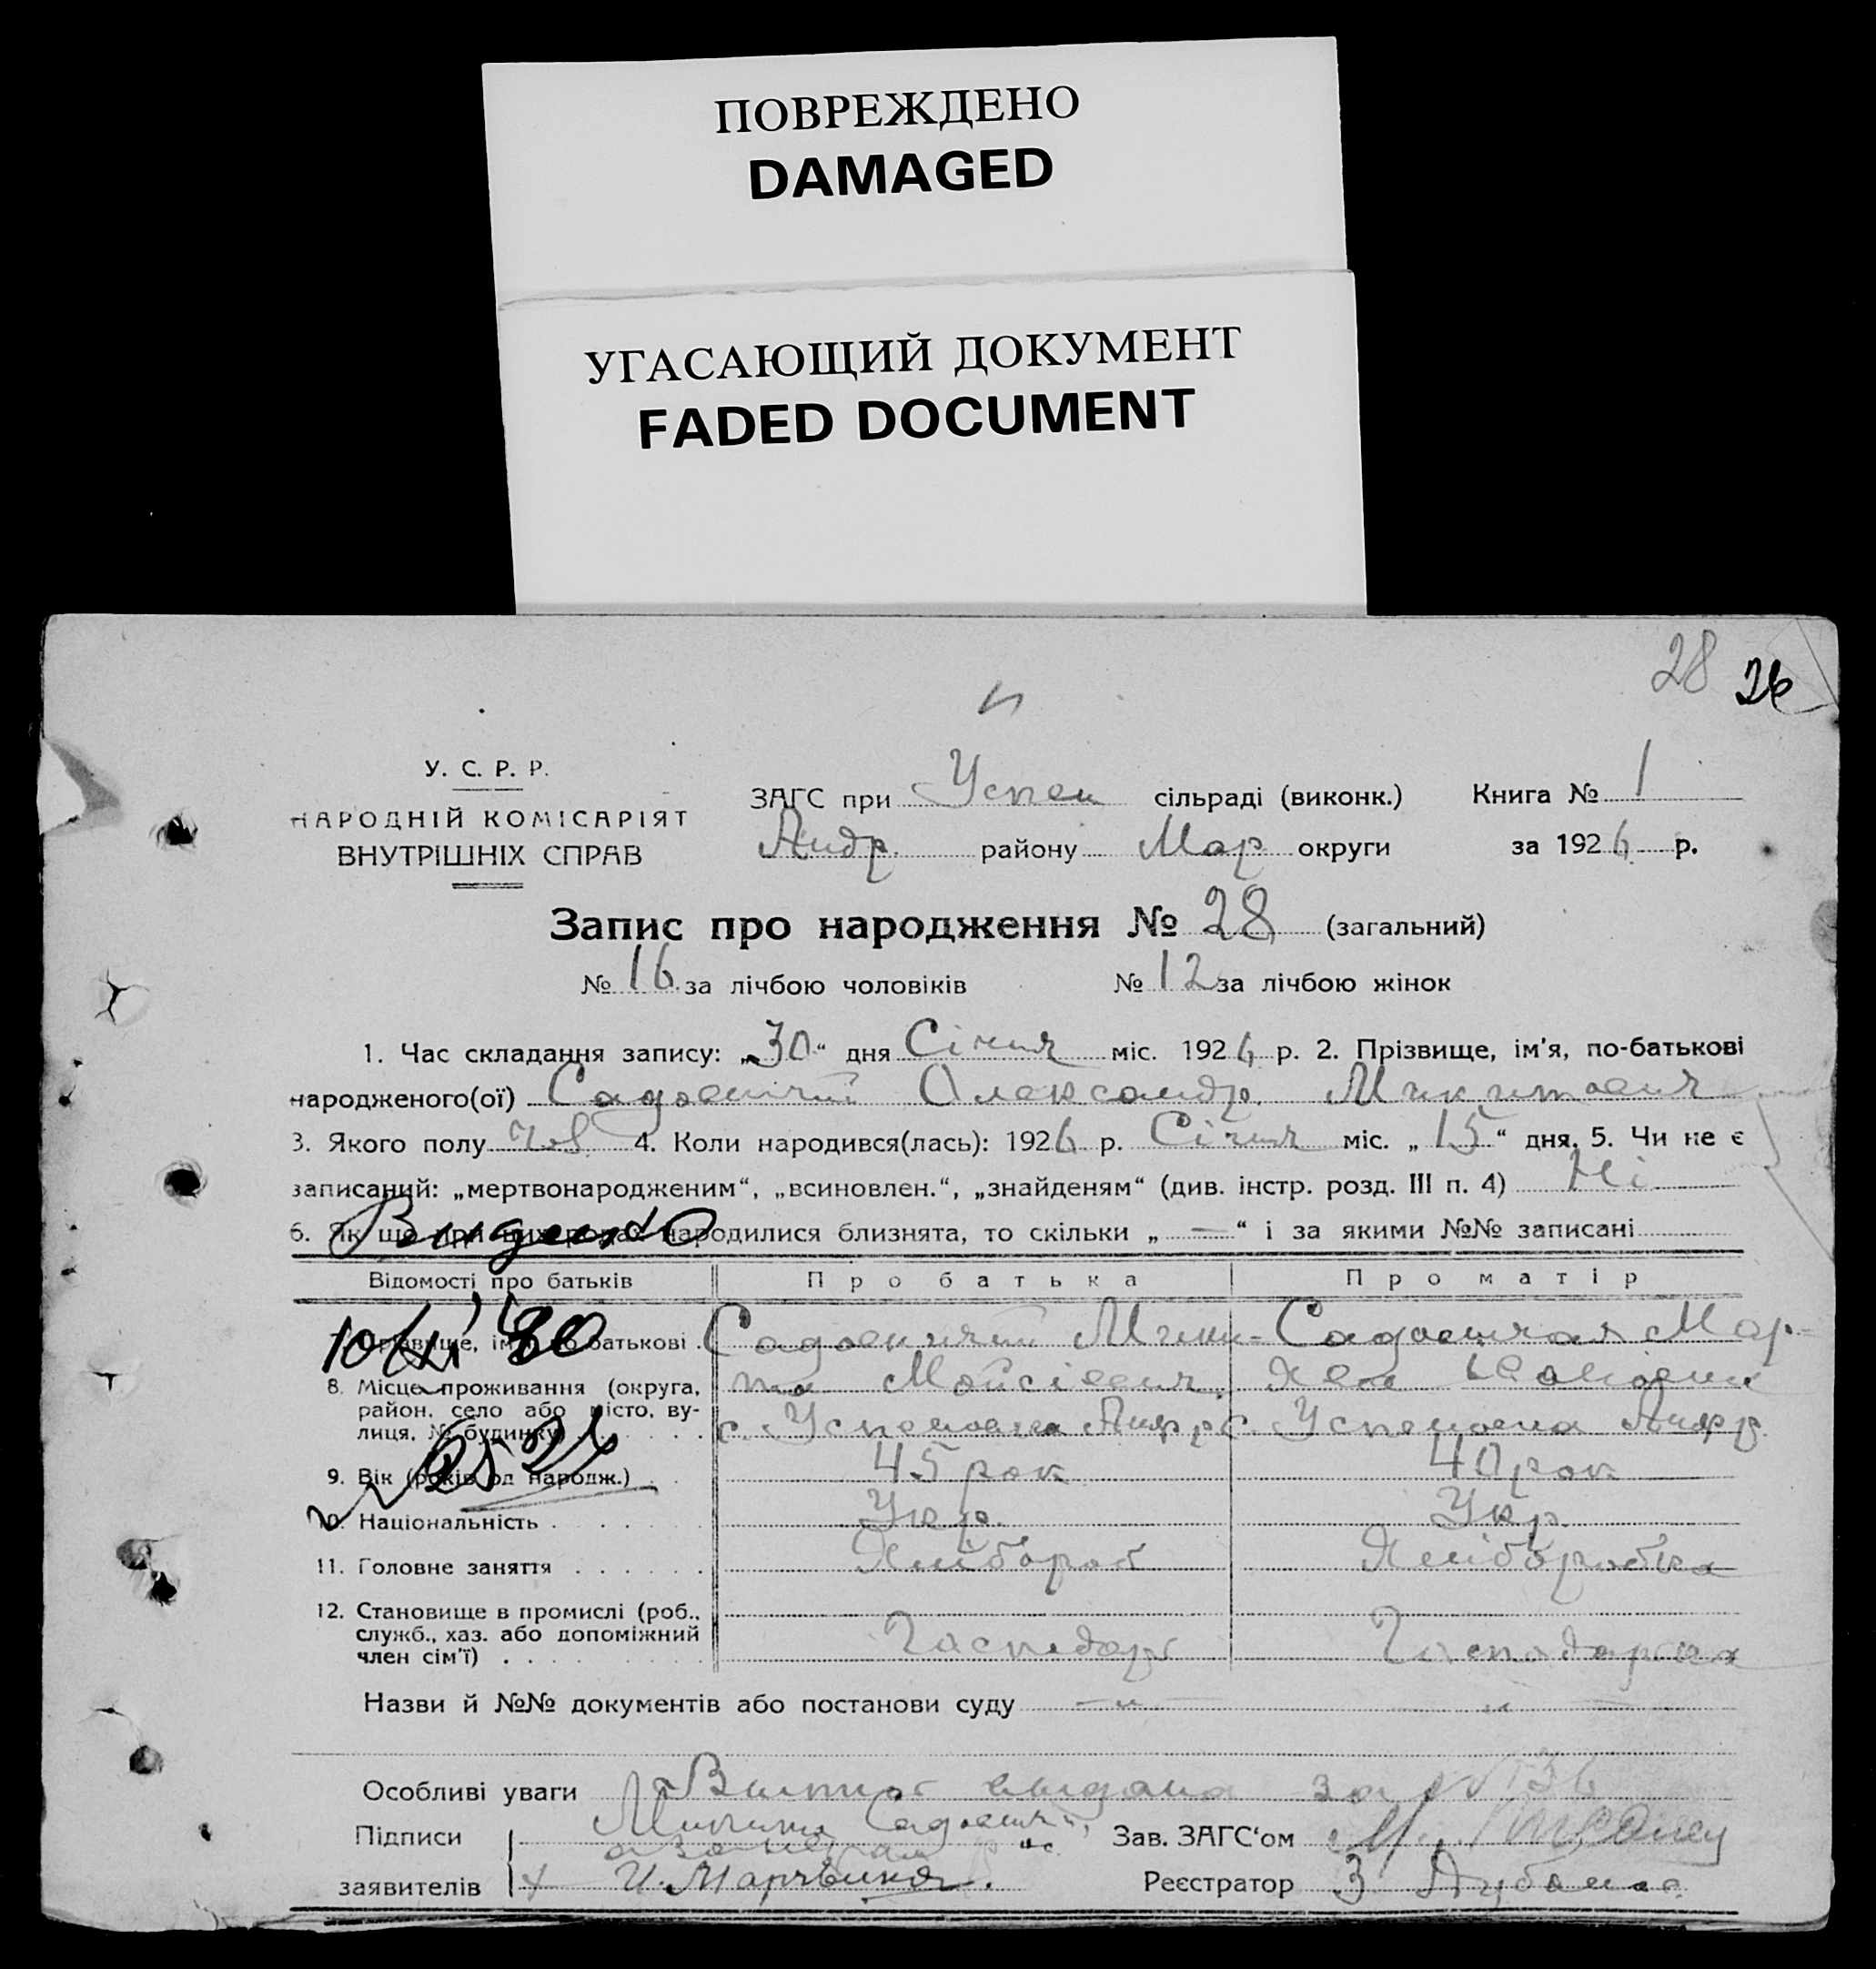 ПОВРЕЖДЕНО
DAMAGED
УГАСАЮЩИЙ ДОКУМЕНТ
FADED DOCUMENT
28 26
У. С. Р. Р.
НАРОДНІЙ КОМІСАРІЯТ
ВНУТРІШНІХ СПРАВ
ЗАГС при Успен сільраді (виконк.) Книга № 1
Андр. району Мар округи за 1926 р.
Запис про народження № 28 (загальний)
№ 16 за лічбою чоловіків № 12 за лічбою жінок
1. Час складання запису: „30“ дня Січня міс. 1926 р. 2. Прізвище, ім'я, по-батькові
народженого(ої) Садовничий Олександр Микитович
3. Якого полу чол 4. Коли народився(лась): 1926 р. Січня міс. „15“ дня. 5. Чи не є
записаний: „мертвонародженим“, „всиновлен.“, „знайденям“ (див. інстр. розд. III п. 4) Ні
6. Як що при цих родах народилися близнята, то скільки „ — “ і за якими №№ записані
Відомості про батьків Про батька Про матір
7. Прізвище, ім'я, по-батькові Садовничий Мики- Садовничая Мар-
8. Місце проживання (округа, та Мойсієвич
район, село або місто, ву-
лиця, № будинку) с. Успеновка Андр с. Успеновка Андр
9. Вік (років од народж.) 45 рок 40 рок
10. Національність Укр. Укр.
11. Головне заняття Хлібороб Хліборобка
12. Становище в промислі (роб.,
служб., хаз. або допоміжний
член сім'ї) Господарь Господарка
Назви й №№ документів або постанови суду — „ — „ —
Особливі уваги за №
Підписи Микита Садовничий Зав. ЗАГС‘ом М.
заявителів И. Реєстратор З